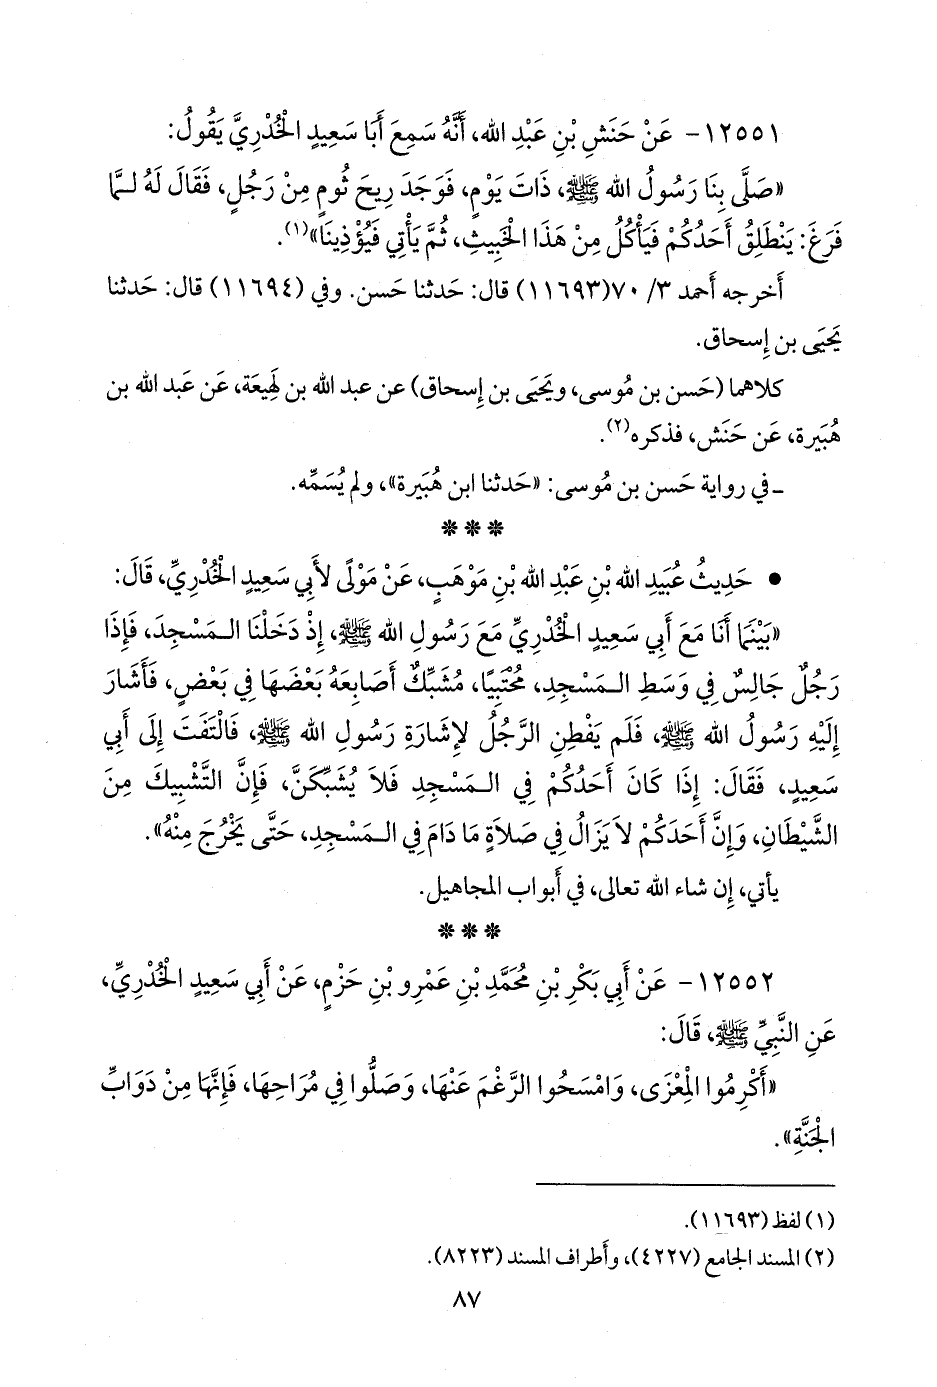 ١٢٥٥١- عَنْ حَنَشِ بْنِ عَبْدِ الله، أَنَّهُ سَمِعَ أَبَا سَعِيدٍ الْخُدْرِيَّ يَقُولُ:
«صَلَّى بِنَا رَسُولُ الله ﷺ، ذَاتَ يَوْمٍ، فَوَجَدَ رِيحَ ثُومٍ مِنْ رَجُلٍ، فَقَالَ لَهُ لَـمَّا
فَرَغَ: يَنْطَلِقُ أَحَدُكُمْ فَيَأْكُلُ مِنْ هَذَا الْخَبِيثِ، ثُمَّ يَأْتِي فَيُؤْذِينَا»(١).
أخرجه أحمد ٣/ ٧٠(١١٦٩٣) قال: حَدثنا حَسن. وفي (١١٦٩٤) قال: حَدثنا
يَحيَى بن إِسحاق.
كلاهما (حَسن بن مُوسى، ويَحيَى بن إِسحاق) عن عبد الله بن لَهِيعَة، عَن عَبد الله بن
هُبَيرة، عَن حَنَش، فذكره(٢).
ـ في رواية حَسن بن مُوسى: «حَدثنا ابن هُبَيرة»، ولم يُسَمِّه.
***
• حَدِيثُ عُبَيدِ الله بْنِ عَبْدِ الله بْنِ مَوْهَبٍ، عَنْ مَوْلًى لأَبِي سَعِيدٍ الْخُدْرِيِّ، قَالَ:
«بَيْنَمَا أَنَا مَعَ أَبِي سَعِيدٍ الْخُدْرِيِّ مَعَ رَسُولِ الله ﷺ، إِذْ دَخَلْنَا الـمَسْجِدَ، فَإِذَا
رَجُلٌ جَالِسٌ فِي وَسَطِ الـمَسْجِدِ، مُحْتَبِيًا، مُشَبِّكٌ أَصَابِعَهُ بَعْضَهَا فِي بَعْضٍ، فَأَشَارَ
إِلَيْهِ رَسُولُ الله ﷺ، فَلَم يَفْطِنِ الرَّجُلُ لإِشَارَةِ رَسُولِ الله ﷺ، فَالْتَفَتَ إِلَى أَبِي
سَعِيدٍ، فَقَالَ: إِذَا كَانَ أَحَدُكُمْ فِي الـمَسْجِدِ فَلاَ يُشَبِّكَنَّ، فَإِنَّ التَّشْبِيكَ مِنَ
الشَّيْطَانِ، وَإِنَّ أَحَدَكُمْ لاَ يَزَالُ فِي صَلاَةٍ مَا دَامَ فِي الـمَسْجِدِ، حَتَّى يَخْرُجَ مِنْهُ».
يأتي، إن شاء الله تعالى، في أَبواب المجاهيل.
***
١٢٥٥٢- عَنْ أَبِي بَكْرِ بْنِ مُحَمَّدِ بْنِ عَمْرِو بْنِ حَزْمٍ، عَنْ أَبِي سَعِيدٍ الْخُدْرِيِّ،
عَنِ النَّبِيِّ ﷺ، قَالَ:
«أَكْرِمُوا الْمِعْزَى، وَامْسَحُوا الرَّغْمَ عَنْهَا، وَصَلُّوا فِي مُرَاحِهَا، فَإِنَّهَا مِنْ دَوَابِّ
الْجَنَّةِ».
(١) لفظ (١١٦٩٣).
(٢) المسند الجامع (٤٢٢٧)، وأطراف المسند (٨٢٢٣).
٨٧